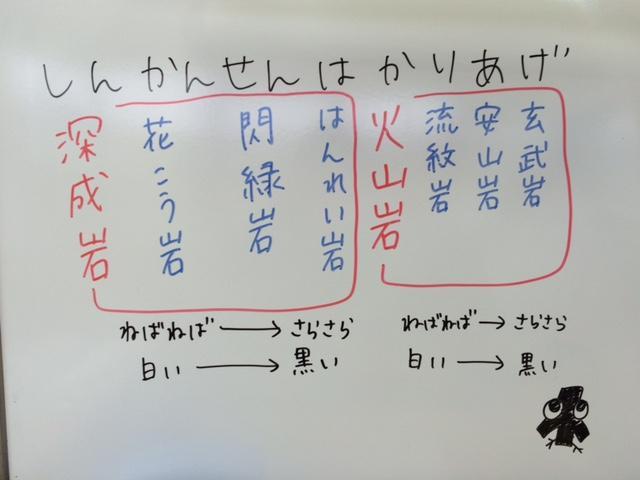 しんかんせんはかりあげ
深成岩
花こう岩
閃緑岩
はんれい岩
火山岩
流紋岩
安山岩
玄武岩
ねばねば→さらさら
白い→黒い
ねばねば→さらさら
白い→黒い